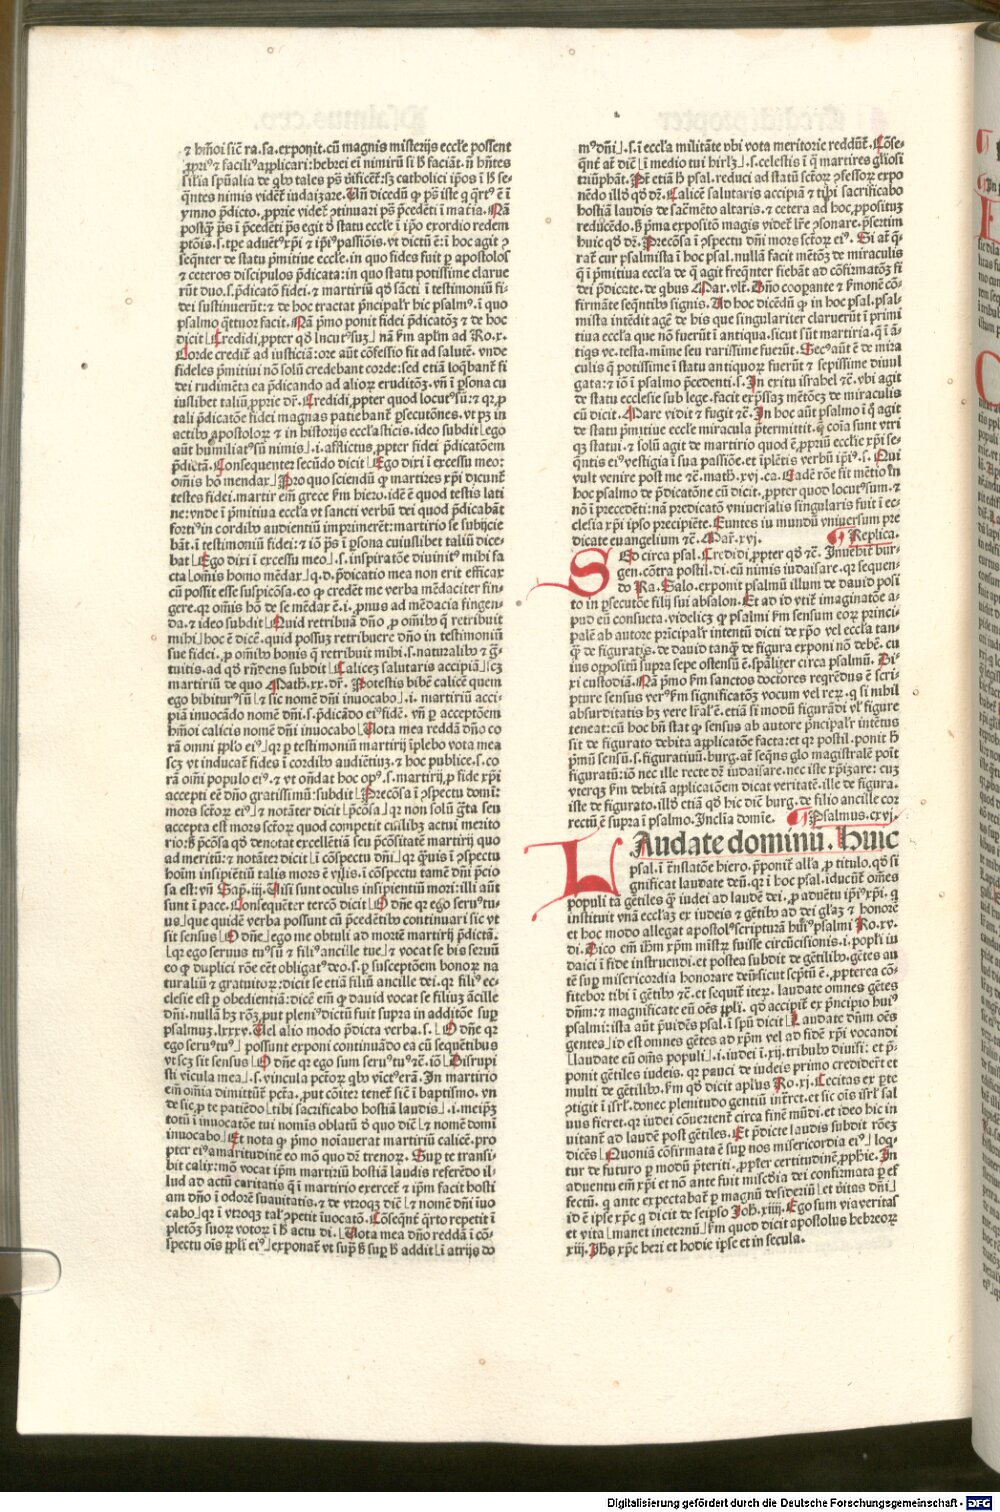 ⁊ hm̄oi sic̄ ra. sa. exponit. cū magnis misterijs eccl̄e possent
ꝓpri⁹ ⁊ facili⁹ applicari: hebrei em̄ nimirū si h̄ faciāt. n̄ hn̄tes
silia spūalia de qb⁹ tales ps̄ v̄ificēt: sꝫ catholici ip̄os ī h̄ se-
q̄ntes nimis vident̄ iudaizare.
ymno p̄dicto, ꝓprie videt̄ ꝯtinuari ps̄ p̄cedēti ī mat̄ia. Nā
postq̄ƺ ps̄ ī p̄cedēti ps̄ egit d̄ statu eccl̄e ī ip̄o exordio redem
seq̄nter de statu p̄mitiue eccl̄e. in quo fides fuit ꝑ apostolos
⁊ ceteros discipulos p̄dicata: in quo statu potissime clarue
rūt duo. s. p̄dicatō fidei. ⁊ martiriū qd̄ sācti ī testimoniū fi-
dei sustinuerūt: ⁊ de hoc tractat p̄ncipalr̄ hic psalm⁹. ī quo
psalmo q̄ttuor facit. Nā pͥmo ponit fidei p̄dicatōƺ ⁊ de hoc
dicit Credidi, ꝓpter qd̄ locut⁹ suƺ nā fm̄ aplm̄ ad Ro. x.
Corde credit̄ ad iusticiā: ore aūt cōfessio fit ad salutē. vnde
fideles pͥmitiui nō solū credebant corde: sed etiā loq̄bant̄ fi
dei rudimēta ea p̄dicando ad alioꝝ eruditōƺ. vn̄ ī ꝑsona cu
iuslibet taliū, ꝓprie dr̄. Credidi, ꝓpter quod locut⁹ sū: ⁊ qꝛ, ꝓ
tali p̄dicatōe fidei magnas patiebant̄ ꝑsecutōnes. vt pꝫ in
actib⁹ apostoloꝝ ⁊ in historijs eccl̄asticis. ideo subdit ego
aūt humiliat⁹ sū nimis. i. afflictus, ꝓpter fidei p̄dicatōem
p̄dictā. Consequenter secūdo dicit Ego dixi ī excessu meo:
omīs hō mendax Pro quo sciendū ꝙ martires xp̄i dicunt̄
testes fidei. martir em̄ grece fm̄ hiero. idē ē quod testis lati
ne: vnde ī pͥmitiua eccl̄a vt sancti verbū dei quod p̄dicabāt
forti⁹ in cordib⁹ audientiū imprimerēt: martirio se subijcie
bāt. ī testimoniū fidei: ⁊ iō ps̄ ī ꝑsona cuiuslibet taliū dice-
bat Ego dixi ī excessu meo. s. inspiratōe diuinit⁹ mihi fa
cta omīs homo mēdax q. d. p̄dicatio mea non erit efficax
cū possit esse suspicōsa. eo ꝙ credēt me verba mēdaciter fin-
gere. qꝛ omīs hō de se mēdax ē. i. ꝓnus ad mēdacia fingen
da. ⁊ ideo subdit Quid retribuā dn̄o, ꝓ omīb⁹ q̄ retribuit
mihi hoc ē dicē. quid possuƺ retribuere dn̄o in testimoniū
sue fidei, ꝓ omīb⁹ bonis q̄ retribuit mihi. s. naturalib⁹ ⁊ g̃-
tuitis. ad qd̄ rn̄dens subdit Calicem salutaris accipiā scꝫ
martiriū de quo Math. xx. dr̄. Potestis bibē calicē quem
ego bibitur⁹ sū ⁊ sic nomē dn̄i inuocabo. i. martiriū acci-
piā inuocādo nomē dn̄i. s. p̄dicādo ei⁹ fidē. vn̄ ꝑ acceptōem
hm̄oi calicis nomē dn̄i inuocabo Uota mea reddā dn̄o co
rā omni ppl̄o ei⁹ qꝛ ꝑ testimoniū martirij īplebo vota mea
scꝫ vt inducat̄ fides ī cordib⁹ audiētiuƺ. ⁊ hoc publice. s. co
rā omi populo ei⁹. ⁊ vt on̄dat hoc op⁹. s. martirij, ꝓ fide xp̄i
accepti eē dn̄o gratissimū: subdit Precōsa ī ꝯspectu domī:
mors sctōꝝ ei⁹ ⁊ notāter dicit p̄cōsa qꝛ non solū g̃ta seu
accepta est mors sctōꝝ quod competit cuilibꝫ actui merito
rio: h̄ p̄cōsa qd̄ denotat excellētiā seu p̄cōsitatē martirij quo
ad meritū: ⁊ notāter dicit ī cōspectu dn̄i qꝛ q̄uis ī ꝯspectu
hoīm insipiētiū talis mors ē vilis. ī cōspectu tamē dn̄i p̄cio
sa est: vn̄ Sap. iij. Uisi sunt oculis insipientiū mori: illi aūt
sunt ī pace. Consequēter tercō dicit O dn̄e qꝛ ego seru⁹ tu⁹-
us que quidē verba possunt cū p̄cedētib⁹ continuari sic vt
sit sensus O dn̄e ego me obtuli ad mortē martirij p̄dictā.
qꝛ ego seruus tu⁹ sū ⁊ fili⁹ ancille tue ⁊ vocat se bis seruū
eo ꝙ duplici rōe eēt obligat⁹ deo. s. ꝑ susceptōem bonoꝝ na
turaliū ⁊ gratuitoꝝ: dicit se etiā filiū ancille dei. qꝛ fili⁹ ec-
clesie est ꝑ obedientiā: dicēē em̄ ꝙ dauid vocat se filiuƺ ācille
dn̄i. nullā hꝫ rōƺ, put pleni⁹ dictū fuit supra in additōe sup̱
psalmuƺ. lxxxv. Uel alio modo p̄dicta verba. s. O dn̄e qꝛ
ego seru⁹ tu⁹ possunt exponi continuādo ea cū sequētibus
vt scꝫ sit sensus O dn̄e qꝛ ego sum seru⁹ tu⁹ ⁊c̄. iō Disrupi
sti vīcula mea. s. vincula pctōꝝ qb⁹ vīct⁹ erā. In martirio
em̄ om̄ia dimittūt̄ pctā. ꝓut cōiter tenet̄ sic̄ ī baptismo. vn
de sic, ꝓ te patiēdo tibi sacrificabo hostiā laudis. i. meipƺ
totū ī inuocatōe tui nomīs oblatū d̄ quo diē ⁊ nomē domī
inuocabo Et nota ꝙ pͥmo noīauerat martiriū calicē. pro
pter ei⁹ amaritudinē eo mō quo dē trenoꝝ. Sup̱ te transi-
bit calix: mō vocat ip̄m martiriū hostiā laudis referēdo il-
lud ad actū caritatis q̄ ī martirio exercet̄ ⁊ ip̄m facit hosti
am dn̄o ī odorē suauitatis. ⁊ de vtroqꝫ dicē ⁊ nomē dn̄i īuo
cabo qꝛ ī vtroqꝫ tal̓ ꝯpetit īuocatō. Cōseq̄nt̄ q̄rto repetit ī
pletōƺ suoꝝ votoꝝ ī h̄ actu di. Uota mea dn̄o reddā ī cō-
spectu oīs ppl̄i ei⁹ exponat̄ vt sup̱ h̄ sup̱ h̄ addit ī atrijs do
m⁹ dn̄i. s. ī eccl̄a militāte vbi vota meritorie reddūt̄. Cōse-
quēt̄ at̄ diē ī medio tui hirl̄ƺ. s. celestis ī q̄ martires gl̄iosi
triūphāt. Pt̄ etiā h̄ psal. reduci ad statū sctōꝝ ꝯfessoꝝ expo
nēdo illd̄ qd̄ dr̄. Calicē salutaris accipiā ⁊ tibi sacrificabo
hostiā laudis de sac̄mēto altaris. ⁊ cetera ad hoc, ꝓpositƺ
reducēdo. h̄ pͥma expositō magis videt̄ lr̄e ꝯsonare. p̄sertim
huic qd̄ dr̄. Precōsa ī ꝯspectu dn̄i mors sctōꝝ ei⁹. Si at̄ q̄-
rat̄ cur psalmista ī hoc psal. nullā facit mētōƺ de miraculis
q̄ ī pͥmitiua eccl̄a de q̄ agit freq̄nter fiebāt ad cōfirmatōƺ fi
dei p̄dicate. de qbus Mar. vlt̄. Dn̄o coopante ⁊ f̄monē cō-
firmāte seq̄ntib⁹ signis. Ad hoc dicēdū ꝙ in hoc psal. psal-
mista intēdit agē de his que singulariter claruerūt ī pͥmi
tiua eccl̄a que nō fuerūt ī antiqua. sicut sūt martiria. q̄ ī ā-
tiqs ve. testa. mīme seu rarissime fuerūt. Sec⁹ aūt ē de mira
culis q̄ potissime ī statu antiquoꝝ fuerūt ⁊ sepissime diuul
gata: ⁊ iō ī psalmo p̄cedenti. s. In exitu israhel ⁊c̄. vbi agit
de statu ecclesie sub lege. facit exp̄ssaƺ mētōeƺ de miraculis
cū dicit. Mare vidit ⁊ fugit ⁊c̄. In hoc aūt psalmo ī q̄ agit
de statu pͥmitiue eccl̄e miracula p̄termittit. q̄ coīa sunt vtri
qꝫ statui. ⁊ solū agit de martirio quod ē, ꝓpriū eccl̄ie xp̄i se-
q̄ntis ei⁹ vestigia ī sua passiōe. ⁊ īplētis verbū ip̄i⁹. s. Qui
vult venire post me ⁊c̄. math. xvj. ca. Eadē rōe fit mētio ī
hoc psalmo de p̄dicatōne cū dicit, ꝓpter quod locut⁹ sum. ⁊
nō ī p̄cedēti: nā predicatō vniuersalis singularis fuit ī ec-
clesia xp̄i ipso precipiēte. Euntes iu mundū vniuersum pre
dicate euangelium ⁊c̄. Mar. xvj. ¶ Replica.
SEd circa psal. Credidi, ꝓpter qd̄ ⁊c̄. Inuehit̄ bur-
gen. cōtra postil. di. eū nimis iudaisare. qꝛ sequen-
do Ra. Salo. exponit psalmū illum de dauid posi
to in ꝑsecutōe filij sui absalon. Et ad id vtit̄ imaginatōe a-
pud eū consueta. videlicꝫ ꝙ psalmi fm̄ sensum eoꝝ princi-
palē ab autore pͥncipalr̄ intentū dicti de xp̄o vel eccl̄a tan-
q̄ƺ de figuratis. de dauid tanqƺ de figura exponi nō debēt. cu
ius oppositū supra sepe ostensū ē. sp̄aliter circa psalmū. Di-
xi custodiā. Nā pͥmo fm̄ sanctos doctores regrēdus ē scri-
pture sensus ver⁹ fm̄ significatōƺ vocum vel reꝝ. q̄ si nihil
absurditatis hꝫ vere lr̄al̓ ē. etiā si modū figurādi vl̓ figure
teneat: cū hoc bn̄ stat ꝙ sensus ab autore pͥncipalr̄ intētus
sit de figurato debita applicatōe facta: et qꝛ postil. ponit h̄
pͥmū sensū. s. figuratiuū. burg. at̄ seq̄ns glo magistralē poīt
figuratū: iō nec ille recte dr̄ iudaisare. nec iste xp̄izare: cuƺ
vterqƺ fm̄ debitā applicatōem dicat veritatē. ille de figura.
iste de figurato. illd̄ etiā qd̄ hic diē burg. de filio ancille cor
rectū ē supra ī psalmo. Inclīa domīe. ¶ Psalmus. cxvj.
LAudate dominū. Huic
psal. ī tn̄slatōe hiero. p̄ponit̄ all̄a, ꝓ titulo. qd̄ si
gnificat laudate deū. qꝛ ī hoc psal. iducūt̄ om̄es
populi tā gētiles q̄ƺ iudei ad laudē dei, ꝓ aduētu ip̄i⁹ xp̄i. q̄
instituit vnā eccl̄aƺ ex iudeis ⁊ gētib⁹ ad dei gl̄aƺ ⁊ honorē
et hoc modo allegat apostol⁹ scripturā hui⁹ psalmi Ro. xv.
di. Dico em̄ ihm̄ xp̄m mīstꝝ fuisse circūcisionis. i. popl̄i iu
daici ī fide instruendi. et postea subdit de gētilib⁹. gētes au
tē sup̱ misericordia honorare deū. sicut scptū ē., ꝓpterea cō-
fitebor tibi ī gētib⁹ ⁊c̄. et sequit̄ iteꝝ. laudate omnes gētes
dn̄m: ⁊ magnificate eū oēs ppl̄i. qd̄ accipit̄ ex pͥncipio hui⁹
psalmi: ista aūt p̄uidēs psal. ī spū dicit Laudate dn̄m oēs
gentes id est omnes gētes ad xp̄m vel ad fidē xp̄i vocandi
laudate eū om̄s populi. i. iudei ī. xij. tribub⁹ diuisi: et p̄-
ponit gētiles iudeis. qꝛ pauci de iudeis primo crediderūt et
multi de gētilib⁹. fm̄ qd̄ dicit apl̄us Ro. xj. Cecitas ex pͣte
ꝯtigit ī isrl̄. donec plenitudo gentiū intret. et sic oīs isrl̄ sal
uus fieret. qꝛ iudei cōuertent̄ circa finē mūdi. et ideo hic in
uitant̄ ad laudē post gētiles. Et p̄dicte laudis subdit rōeƺ
dicēs Quoniā cōfirmata ē sup̱ nos misericordia ei⁹ loq̄-
tur de futuro ꝑ modū p̄teriti, ꝓpter certitudinē, ꝓphīe. In
aduentu em̄ xp̄i et nō ante fuit mis̄cdia dei confirmata ꝑ ef
fectū. q̄ ante expectabat̄ ꝑ magnū desideriū et v̄itas dn̄i
id ē ipse xp̄c q̄ dicit de seipso Joh. xiiij. Ego sum via veritas
et vita manet ineternū fm̄ quod dicit apostolus hebreoꝝ
xiij. Jhs xp̄c heri et hodie ipse et in secula.
Digitalisierung gefördert durch die Deutsche Forschungsgemeinschaft - DFG